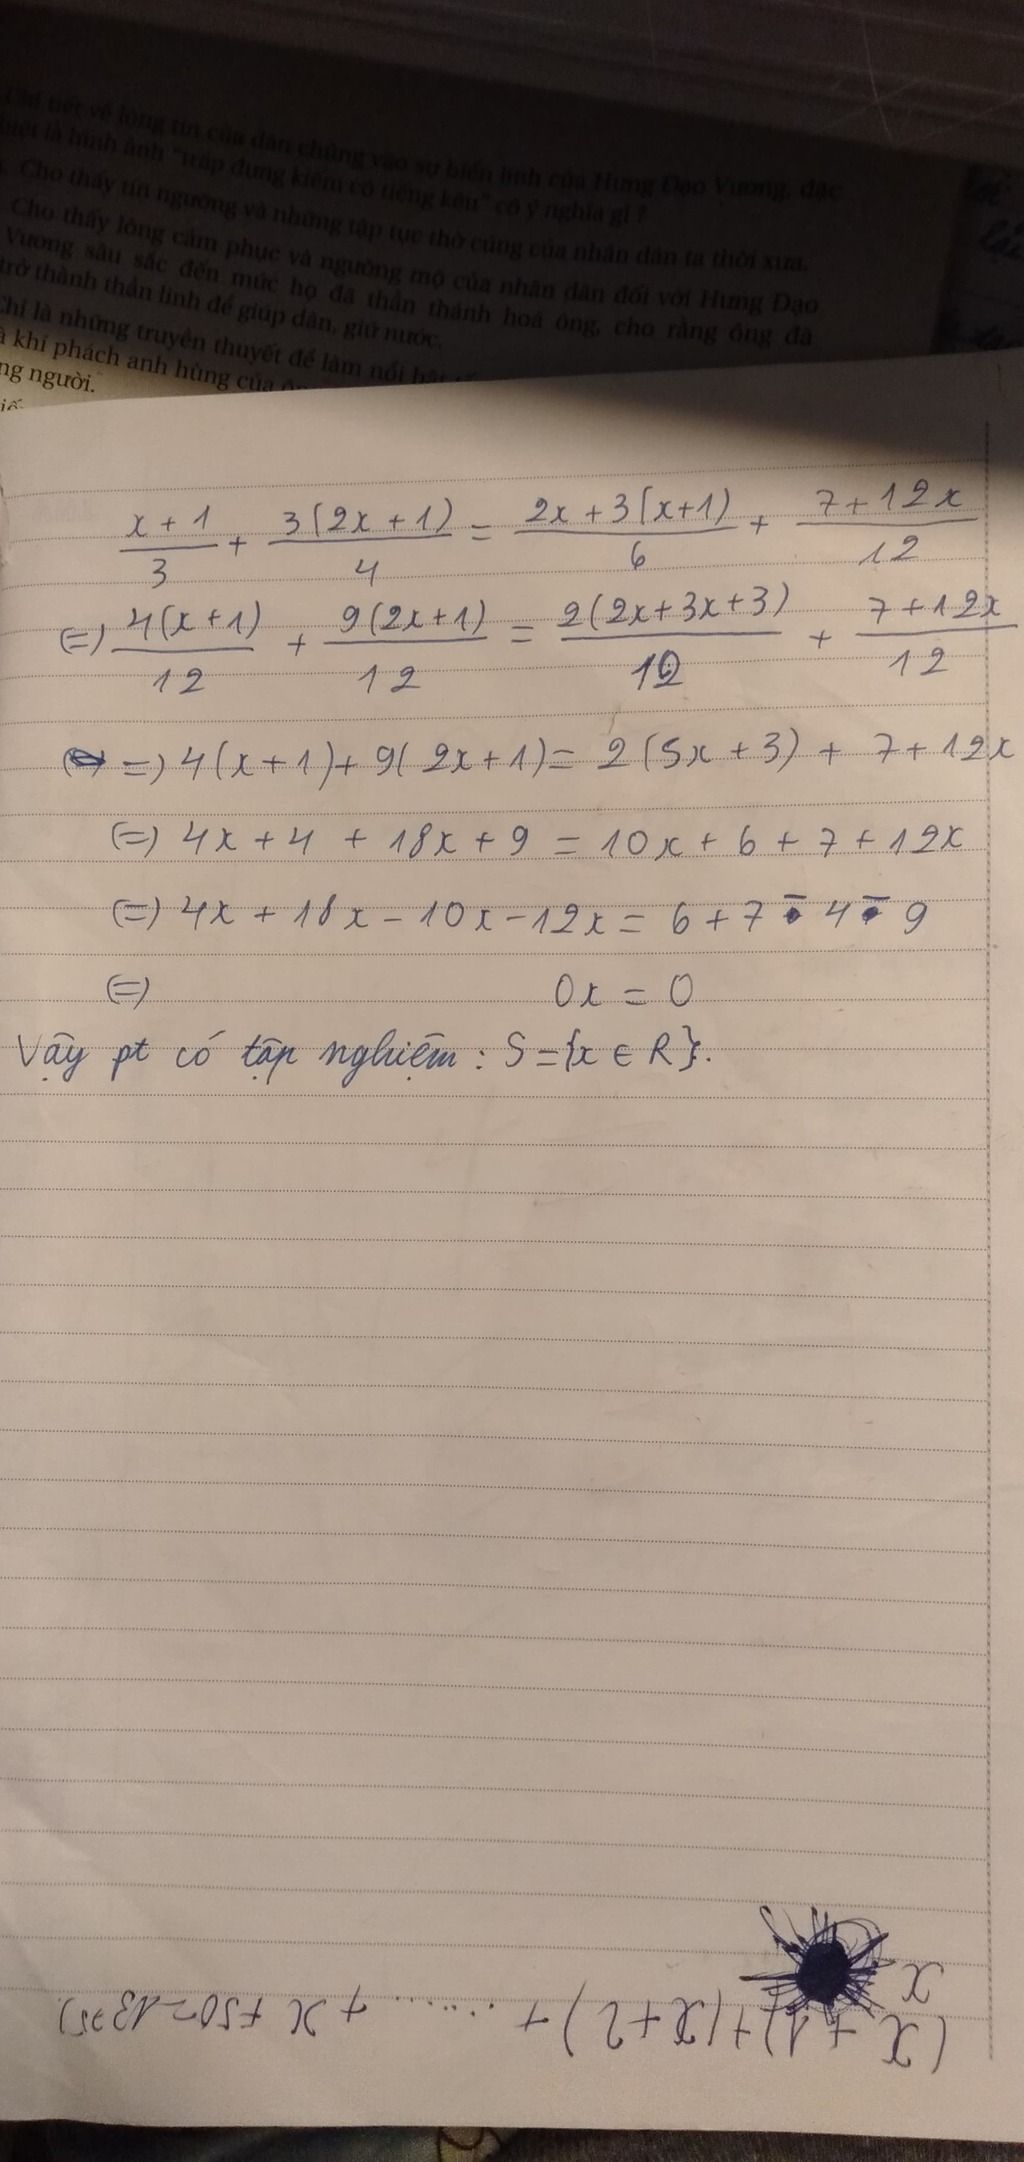 Chi tiết về lòng tin của dân chúng vào sự hiển linh của Hưng Đạo Vương, đặc
biệt là hình ảnh "tráp đựng kiếm có tiếng kêu" có ý nghĩa gì ?
Cho thấy tín ngưỡng và những tập tục thờ cúng của nhân dân ta thời xưa.
Cho thấy lòng cảm phục và ngưỡng mộ của nhân dân đối với Hưng Đạo
Vương sâu sắc đến mức họ đã thần thánh hoá ông, cho rằng ông đã
trở thành thần linh để giúp dân, giữ nước.
Chỉ là những truyền thuyết để làm nổi bật
khí phách anh hùng của
người.
(x+1)/3 + 3(2x+1)/4 = (2x+3(x+1))/6 + (7+12x)/12
(=) 4(x+1)/12 + 9(2x+1)/12 = 2(2x+3x+3)/12 + (7+12x)/12
=) 4(x+1)+ 9(2x+1)= 2(5x+3) + 7+12x
(=) 4x+4 + 18x+9 = 10x+6+7+12x
(=) 4x+18x-10x-12x= 6+7-4-9
(=) 0x = 0
Vậy pt có tập nghiệm: S={x ∈ R}.
(x+1)+(x+2)+ ....... + x+50=1375)
x